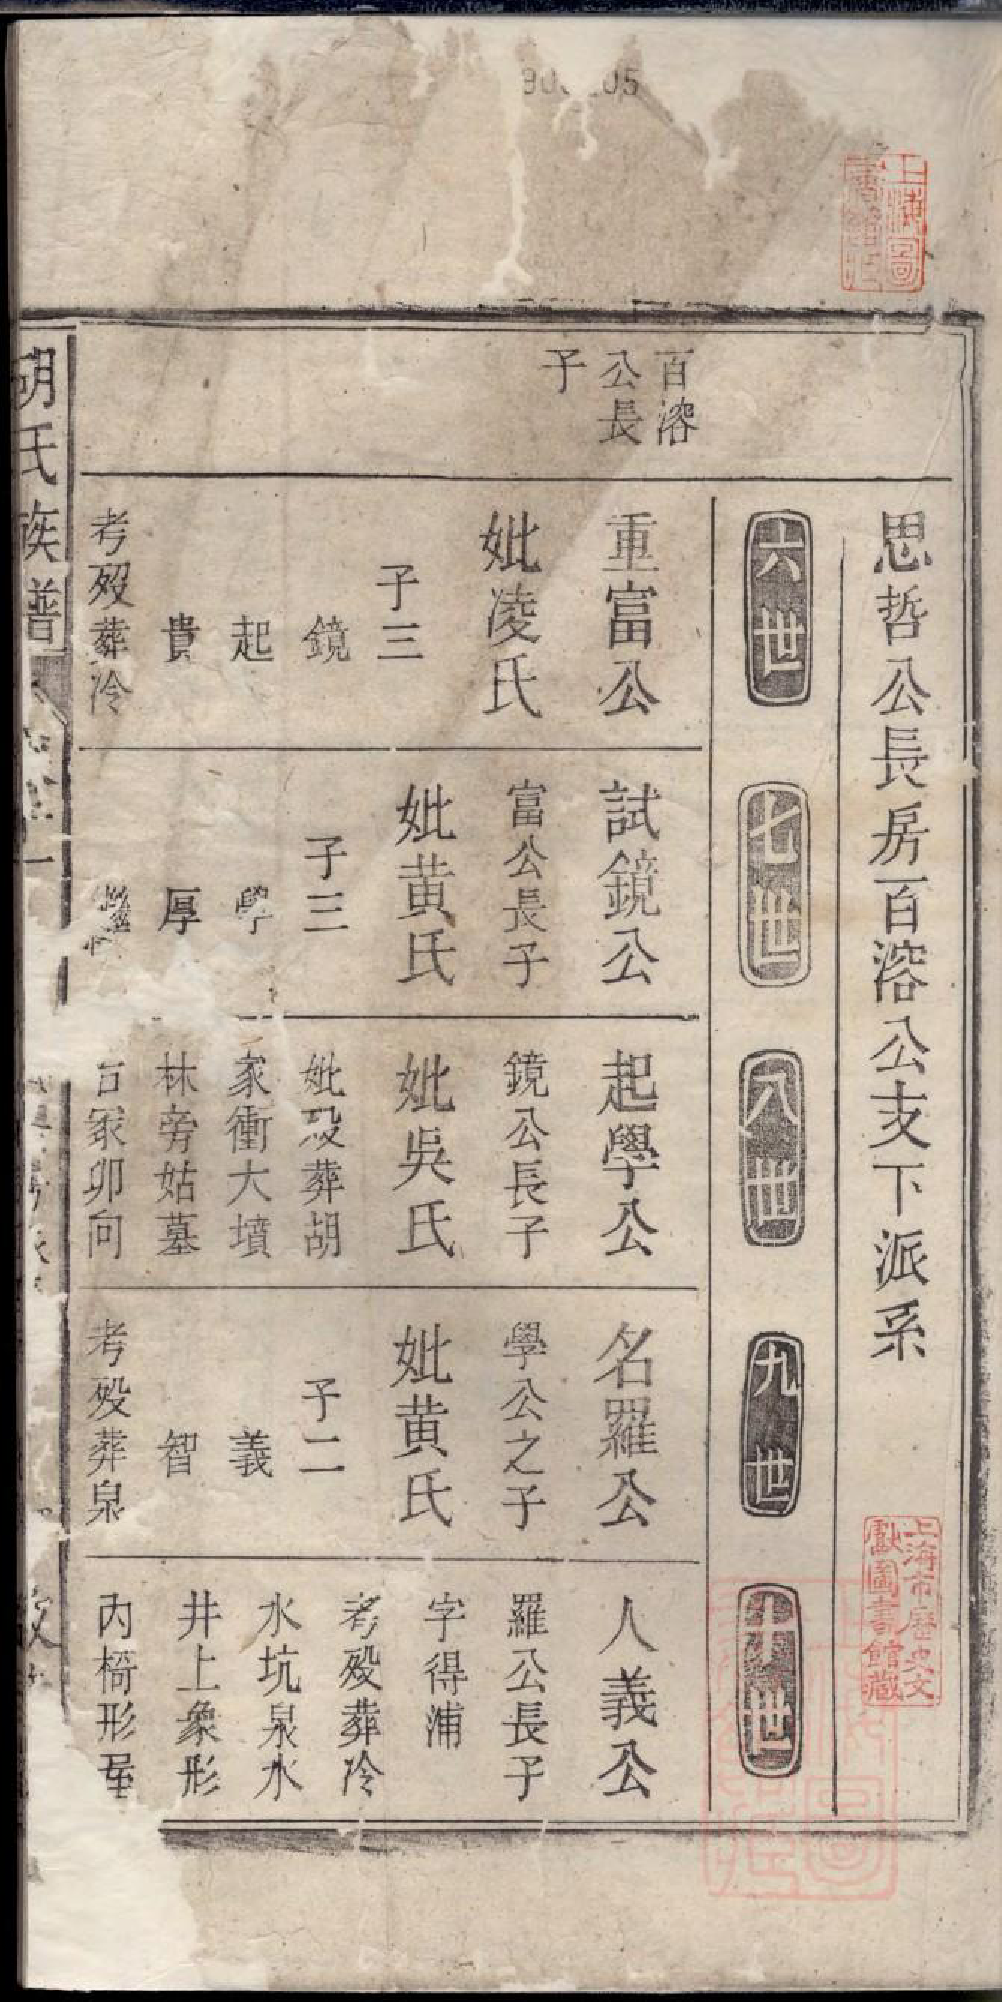 思哲公長房百溶公支下派系
六世
七世
八世
九世
十世
百溶
公長
子
重富公
妣凌氏
子三
鏡
起
貴
考歿葬冷
試鏡公
富公長子
妣黄氏
子三
學
厚
起學公
鏡公長子
妣吳氏
妣歿葬胡
家衝大墳
林旁姑墓
冢卯向
名羅公
學公之子
妣黄氏
子二
義
智
考歿葬泉
人義公
羅公長子
字得浦
考歿葬冷
水坑泉水
井上象形
內椅形
胡氏族譜
上海市歷史文
獻圖書館藏